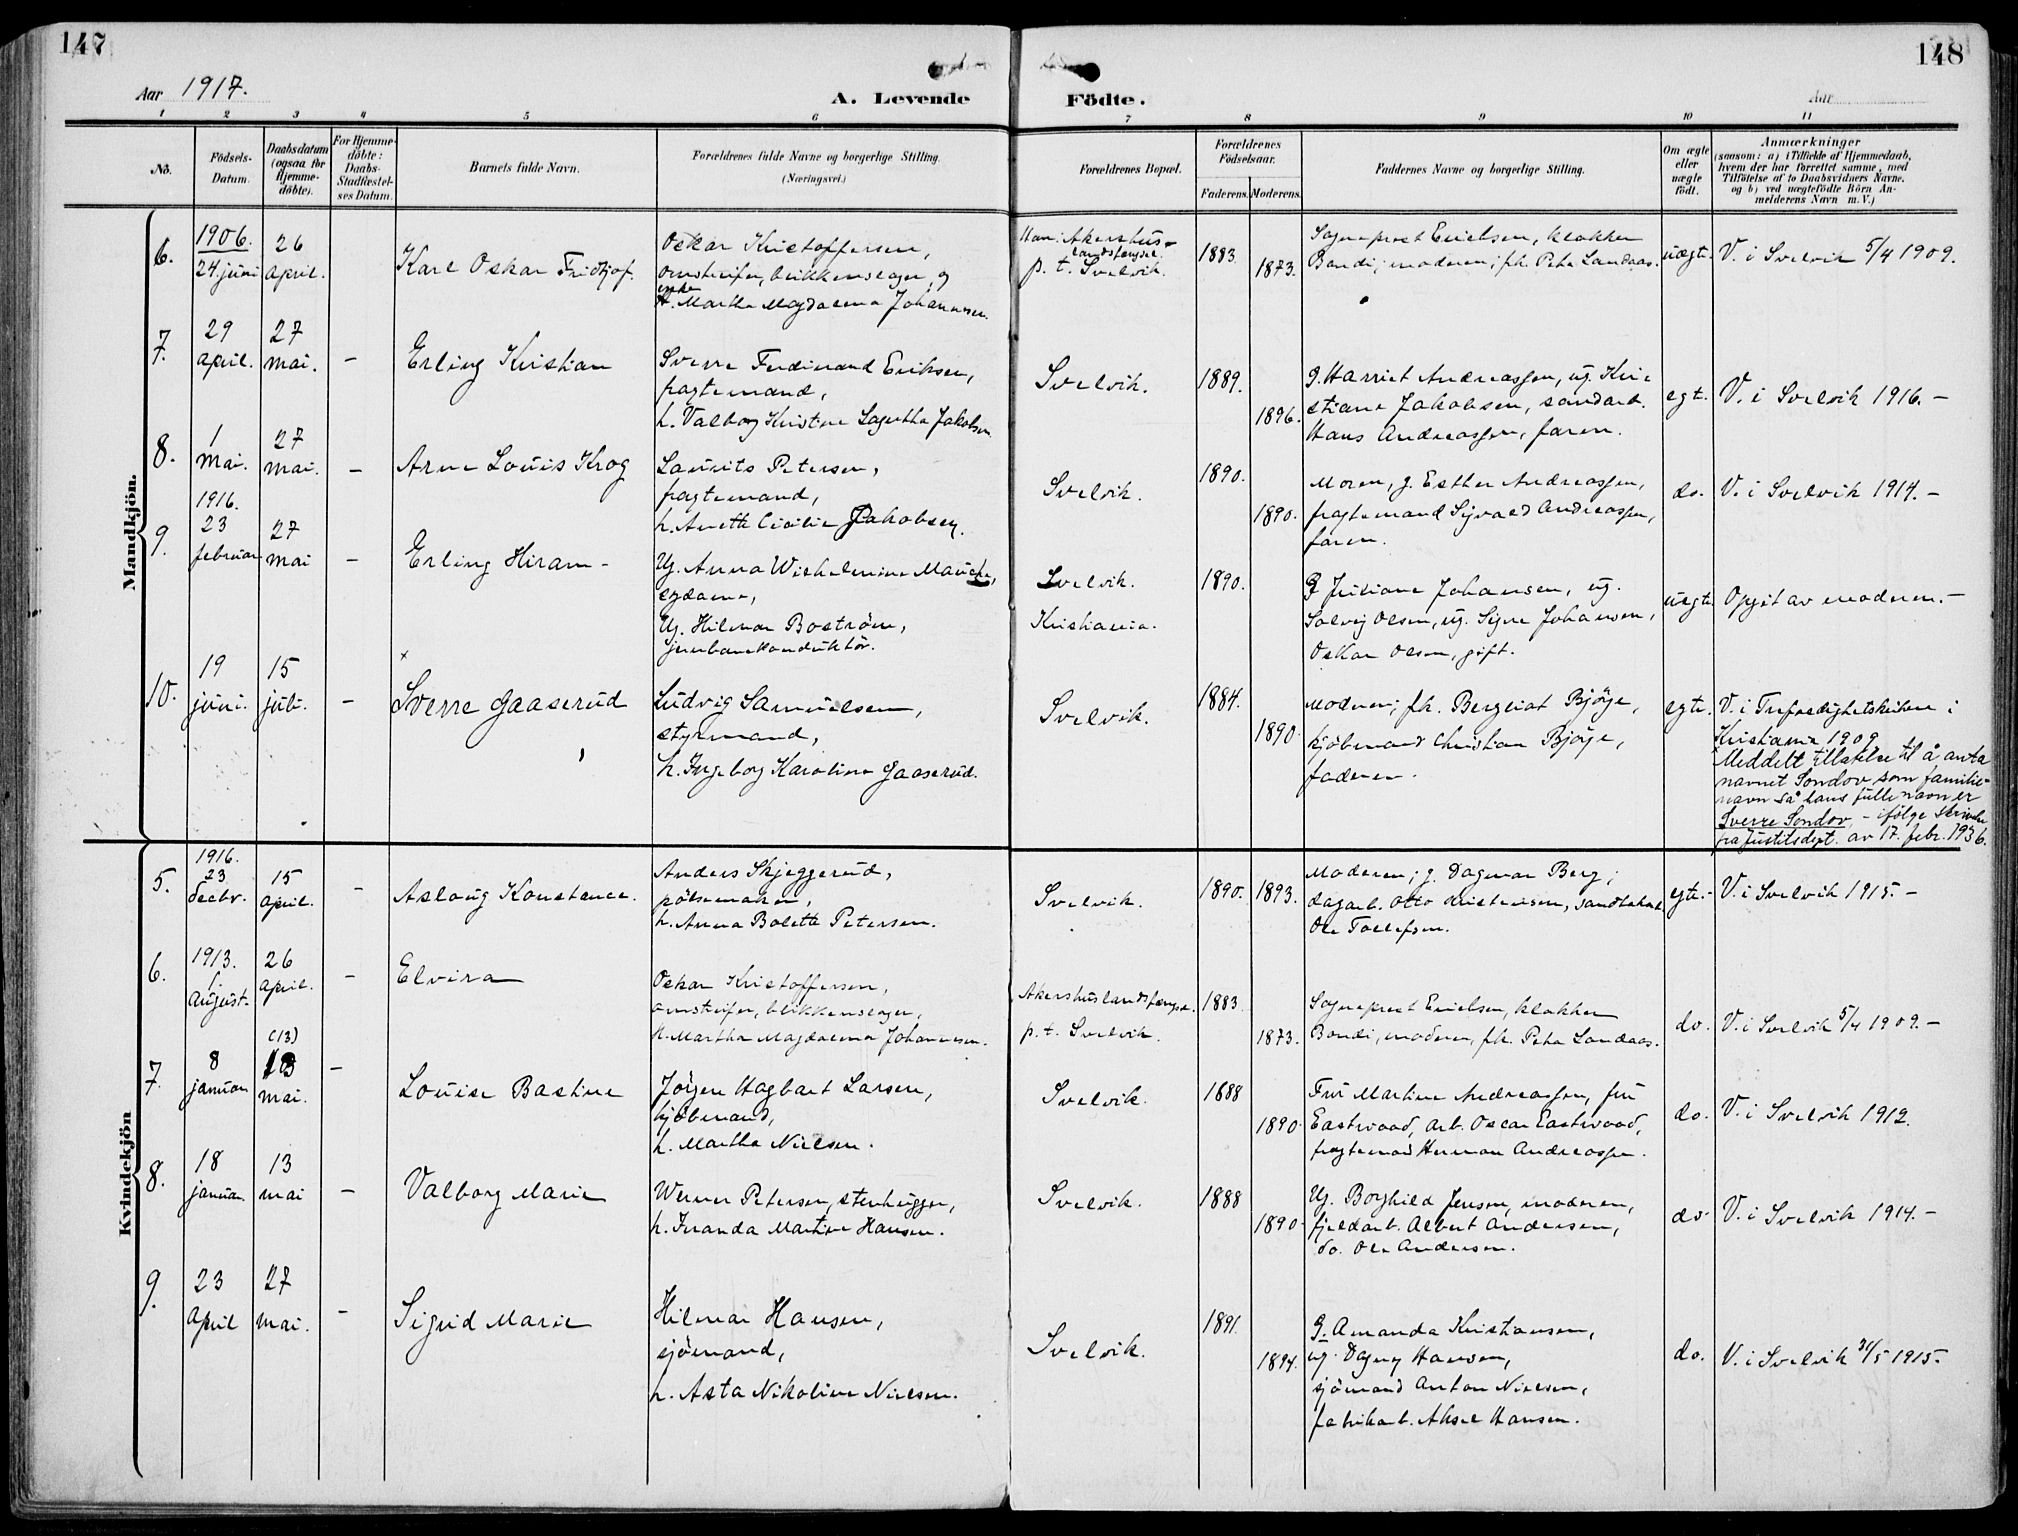 147
Aar 1917.
A. Levende
1 2 3 4 5 6
No.
Födsels-
Datum.
Daabsdatum
(ogsaa for
Hjemme-
döbte).
For Hjemme-
döbte:
Daabs-
Stadfæstel-
ses Datum.
Barnets fulde Navn.
Forældrenes fulde Navne og borgerlige Stilling.
(Næringsvei.)
Mandkjön.
6.
1906.
24. juni
26
april.
Karl Oskar Fridtjof.
Oskar Kristoffersen,
omstreifer, blikkenslager, og
enke
Martha Magdalena Johannesen.
7.
29
april.
27
mai.
-
Erling Kristian
Sverre Ferdinand Eriksen,
fragtemand,
h. Valborg Kristine Lagertha Jakobsen
8.
1
mai.
27
mai.
-
Arne Louis Krog
Laurits Petersen,
fragtemand,
h. Anette Cicilie Jakobsen.
9.
1916.
23
februar
27
mai
-
Erling Hiram -
Ug. Anna Wilhelmine
sydame,
Ug. Hilmar Boström,
jernbanekonduktör.
10.
19
juni.
15
juli.
-
×
Sverre Gaaserud
Ludvig Samuelsen,
styrmand,
h. Ingeborg Karoline Gaaserud.
Kvindekjön
5.
1916.
23
decbr.
15
april.
-
Aslaug Konstance.
Anders Skjeggerud,
pölsemaker,
h. Anna Bolette Petersen.
6.
1913.
1.
august.
26
april.
-
Elvira
Oskar Kristoffersen,
omstreifer, blikkenslager,
h. Martha Magdalena Johannesen.
7.
8
januar
(13)
13
mai.
-
Louise Bastine
Jörgen Hagbart Larsen,
kjöbmand,
h. Martha Nielsen.
8.
18
januar.
13
mai
-
Valborg Marie
Werner Petersen, stenhugger,
h. Inanda Martine Hansen.
9.
23
april
27
mai.
-
Sigrid Marie
Hilmar Hansen,
sjömand,
h. Asta Nikoline Nielsen.
148
Födte.
Aar
7 8 9 10 11
Forældrenes Bopæl.
Forældrenes
Födselsaar.
Faderens. Moderens.
Faddernes Navne og borgerlige Stilling.
Om ægte
eller
uægte
födt.
Anmærkninger
(saasom: a) i Tilfælde af Hjemmedaab,
hvem der har forrettet samme, med
Tilföielse af to Daabsvidners Navne,
og b) ved uægtefödte Börn An-
melderens Navn m. V.)
Han: Akershus
landsfængsel.
p. t. Svelvik.
1883
1873.
Sogneprest Erichsen, klokker
Bondi, moderen, frk. Petra Landaas.
uægte
V. i Svelvik 5/4 1909.
Svelvik.
1889.
1896.
g. Harriet Andreassen, ug. Kri-
stiane Jakobsen, sandarb.
Hans Andreassen, faren.
egt.
V. i Svelvik 1916. -
Svelvik.
1890.
1890.
Moren, g. Esther Andreassen,
fragtemand Sigvald Andreassen,
faren.
do.
V. i Svelvik 1914. -
Svelvik.
Kristiania.
1890.
g Juliane Johansen, ug.
Solveig Olsen, ug. Signe Johansen,
Oskar Olsen, gift.
uegte
Opgit av moderen. -
Svelvik.
1884.
1890
Moderen; frk. Bergliot Bjöge,
kjöbmand Christian Bjöge,
faderen.
egte.
V. i Trefoldighetskirken i
Kristiania 1909
Meddelt tillatelse til å anta
navnet Sondov som familie-
navn så hans fulle navn er
Sverre Sondov, - ifölge skrivelse
fra Justitsdept. av 17. febr. 1936.
Svelvik.
1890. 1893.
Moderen; g. Dagmar Berg;
dagarb. Otto Kristensen,
Ole Tollefsen.
egte. -
V. i Svelvik 1915. -
Akershus landsfængsel.
p. t. Svelvik.
1883
1873.
Sogneprest Erichsen, klokker
Bondi, moderen, frk. Petra Landaas.
do.
V. i Svelvik 5/4 1909. -
Svelvik.
1888
1890
Fru Martine Andreassen, fru
Eastwood, arb. Oscar Eastwood,
fragtemand Herman Andreassen.
do.
V. i Svelvik 1912.
Svelvik.
1888
1890
Ug. Borghild Jensen, moderen,
fjeldarb. Albert Andersen,
do. Ole Andersen.
do
V. i Svelvik 1914. -
Svelvik.
1891.
1894.
G. Amanda Kristiansen,
ug. Dagny Hansen,
sjömand Anton Nielsen,
fabrikarb. Aksel Hansen.
do.
V. i Svelvik 31/5 1915. -